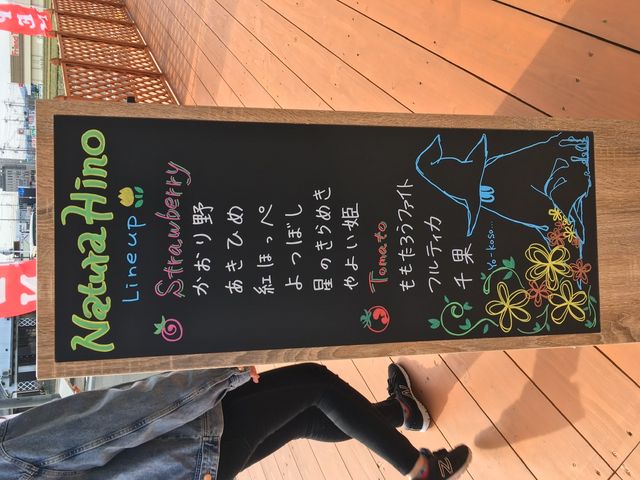 Natura Hino
Lineup
Strawberry
かおり野
あきひめ
紅ほっぺ
よつぼし
星のきらめき
やよい姫
Tomato
ももたろうファイト
フルティカ
千果
Yo-koso...